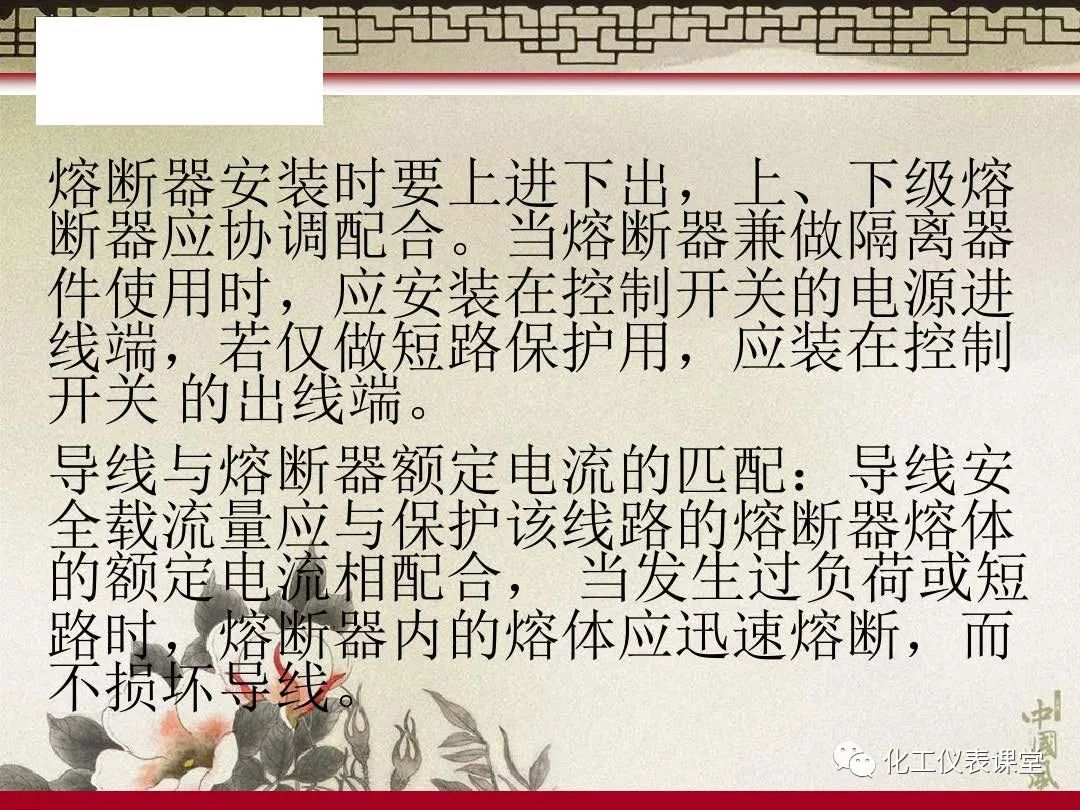 熔断器安装时要上进下出，上、下级熔
断器应协调配合。当熔断器兼做隔离器
件使用时，应安装在控制开关的电源进
线端，若仅做短路保护用，应装在控制
开关 的出线端。
导线与熔断器额定电流的匹配：导线安
全载流量应与保护该线路的熔断器熔体
的额定电流相配合， 当发生过负荷或短
路时，熔断器内的熔体应迅速熔断，而
不损坏导线。
中國風
化工仪表课堂